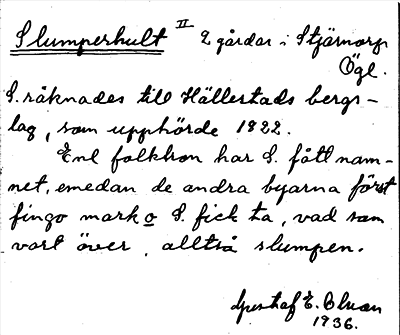 Slumperhult II 2 gårdar i Stjärnorp
Ögl.
S. räknades till Hällestads bergs-
lag, som upphörde 1822.
Enl folktron har S. fått nam-
net, emedan de andra byarna först
fingo mark o S. fick ta, vad som
vart över, alltså slumpen.
Gustaf E.
1936.